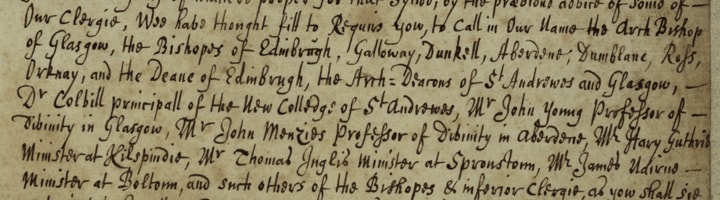 for that Synod, by the prævious advice of some of —
Our Clergie, Wee have thought fitt to Require yow, to Call in Our Name the Arch Bishop
of Glasgow, the Bishopes of Edinbrugh, Galloway, Dunkell, Aberdene, Dumblane, Ross,
Orknay, and the Deane of Edinbrugh, the Arch-Deacons of St Andrewes and Glasgow, —
Dr Colvill principall of the New Colledge of St Andrewes, Mr John young Professor of —
Divinity in Glasgow, Mr John Menzies Professor of Divinity in Aberdene, Mr Hary Guthrie
Minister at Kilspindie, Mr Thomas Inglis Minister at Sproustoun, Mr James —
Minister at Boltoun, and such others of the Bishopes & inferior Clergie, as yow shall see